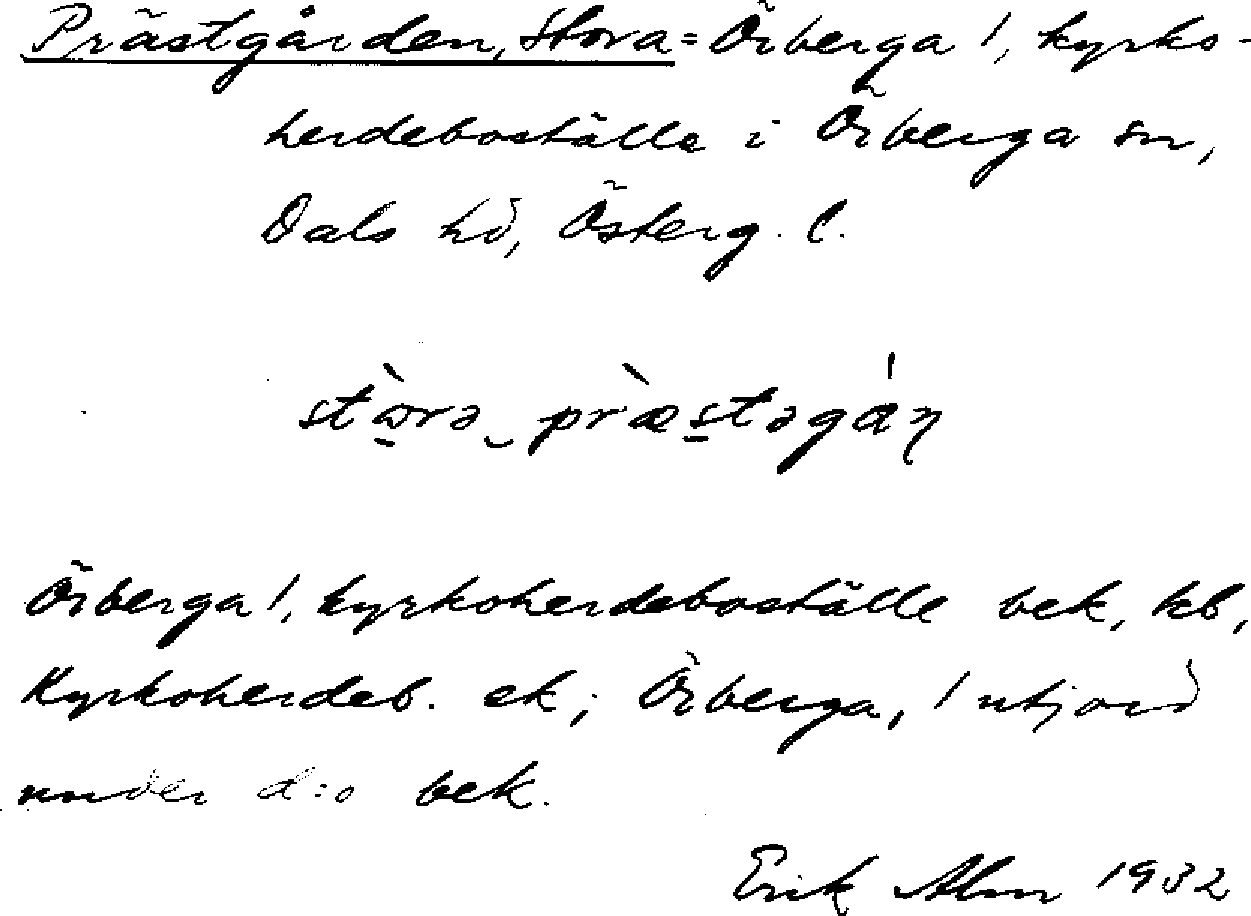 Prästgården, Stora = Örberga 1, kyrko-
herdeboställe i Örberga sn,
Dals hd, Österg. l.
stɷ̀rə‿præ̀stəgáɳ
Örberga 1, kyrkoherdeboställe bek, kb,
Kyrkoherdeb. ek; Örberga, 1 utjord
under d:o bek.
Erik Alm 1932